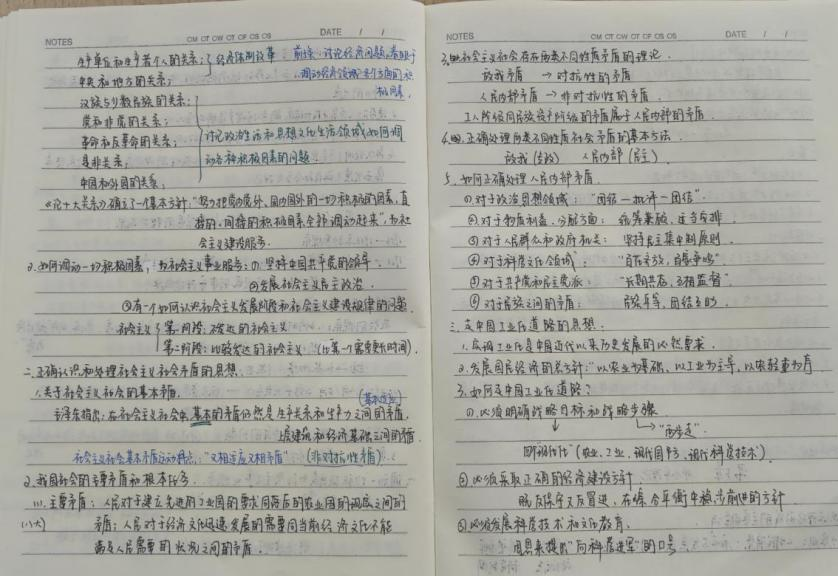 NOTES
CM CT CW CT CF CS OS
DATE / /
生产单位和生产者个人的关系;
经济体制改革
前提:讨论经济问题,着眼于
中央和地方的关系;
调动经济领域各个方面的积
极因素.
汉族与少数民族的关系;
党和非党的关系;
革命和反革命的关系;
讨论政治生活和思想文化生活领域,如何调
是非关系;
动各种积极因素的问题
中国和外国的关系;
《论十大关系》确立了一个基本方针:“努力把党内党外、国内国外的一切积极的因素,直
接的、间接的积极因素全部调动起来”,为社
会主义建设服务.
2.如何调动一切积极因素,为社会主义事业服务:①坚持中国共产党的领导.
②发展社会主义民主政治.
③有一个如何认识社会主义发展阶段和社会主义建设规律的问题.
社会主义
第一阶段:不发达的社会主义
第二阶段:比较发达的社会主义 (比第一个需更长时间).
二.正确认识和处理社会主义社会矛盾的思想.
1.关于社会主义社会的基本矛盾.
(基本适应)
毛泽东指出:在社会主义社会中,基本的矛盾仍然是生产关系和生产力之间的矛盾,
上层建筑和经济基础之间的矛盾.
社会主义社会基本矛盾运动特点:“又相适应又相矛盾” (非对抗性矛盾)
2.我国社会的主要矛盾和根本任务.
(1).主要矛盾:人民对于建立先进的工业国的要求同落后的农业国的现实之间的
(八大)
矛盾;人民对于经济文化迅速发展的需要同当前经济文化不能
满足人民需要的状况之间的矛盾.
NOTES
CM CT CW CT CF CS OS
DATE / /
3.社会主义社会存在两类不同性质矛盾的理论.
敌我矛盾 → 对抗性的矛盾
人民内部矛盾 → 非对抗性的矛盾.
工人阶级同民族资产阶级的矛盾属于人民内部的矛盾.
4.正确处理两类不同性质社会矛盾的基本方法.
敌我(专政) 人民内部(民主).
5.如何正确处理人民内部矛盾.
①.对于政治思想领域: “团结—批评—团结”.
②对于物质利益、分配方面: 统筹兼顾、适当安排.
③对于人民群众和政府机关: 坚持民主集中制原则.
④对于科学文化领域: “百花齐放,百家争鸣”
⑤对于共产党和民主党派: “长期共存,互相监督”
⑥对于民族之间的矛盾: 民族平等、团结互助.
三.走中国工业化道路的思想:
1.实现工业化是中国近代以来历史发展的必然要求.
2.发展国民经济的总方针:“以农业为基础,以工业为主导,以农轻重为序
3.如何走中国工业化道路:
①.必须明确战略目标和战略步骤.
“两步走”.
四个现代化(农业、工业、现代国防、现代科学技术)
②必须采取正确的经济建设方针.
既反保守又反冒进,在综合平衡中稳步前进的方针
③必须发展科学技术和文化教育.
周恩来提出“向科学进军”的口号